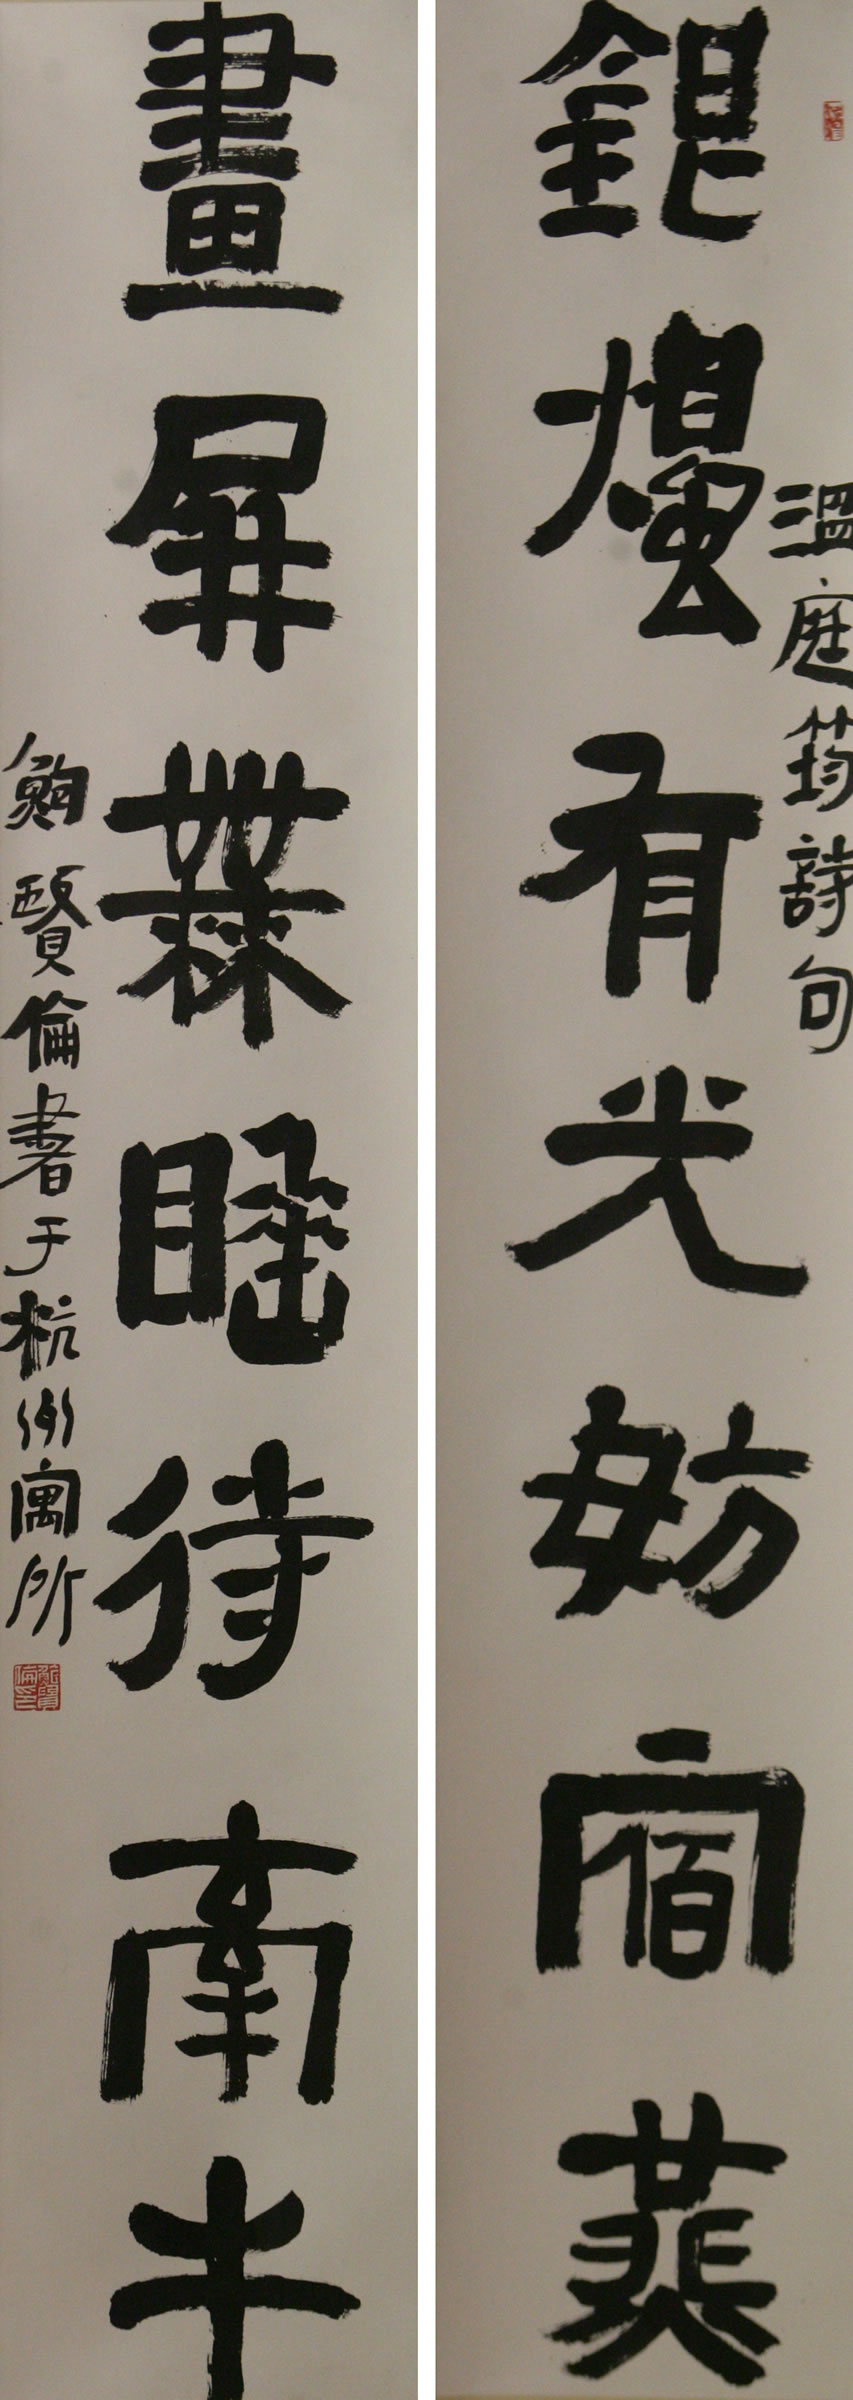 溫庭筠詩句
銀燭有光妨宿燕
畫屏無睡待牽牛
鮑賢倫書于杭州寓所